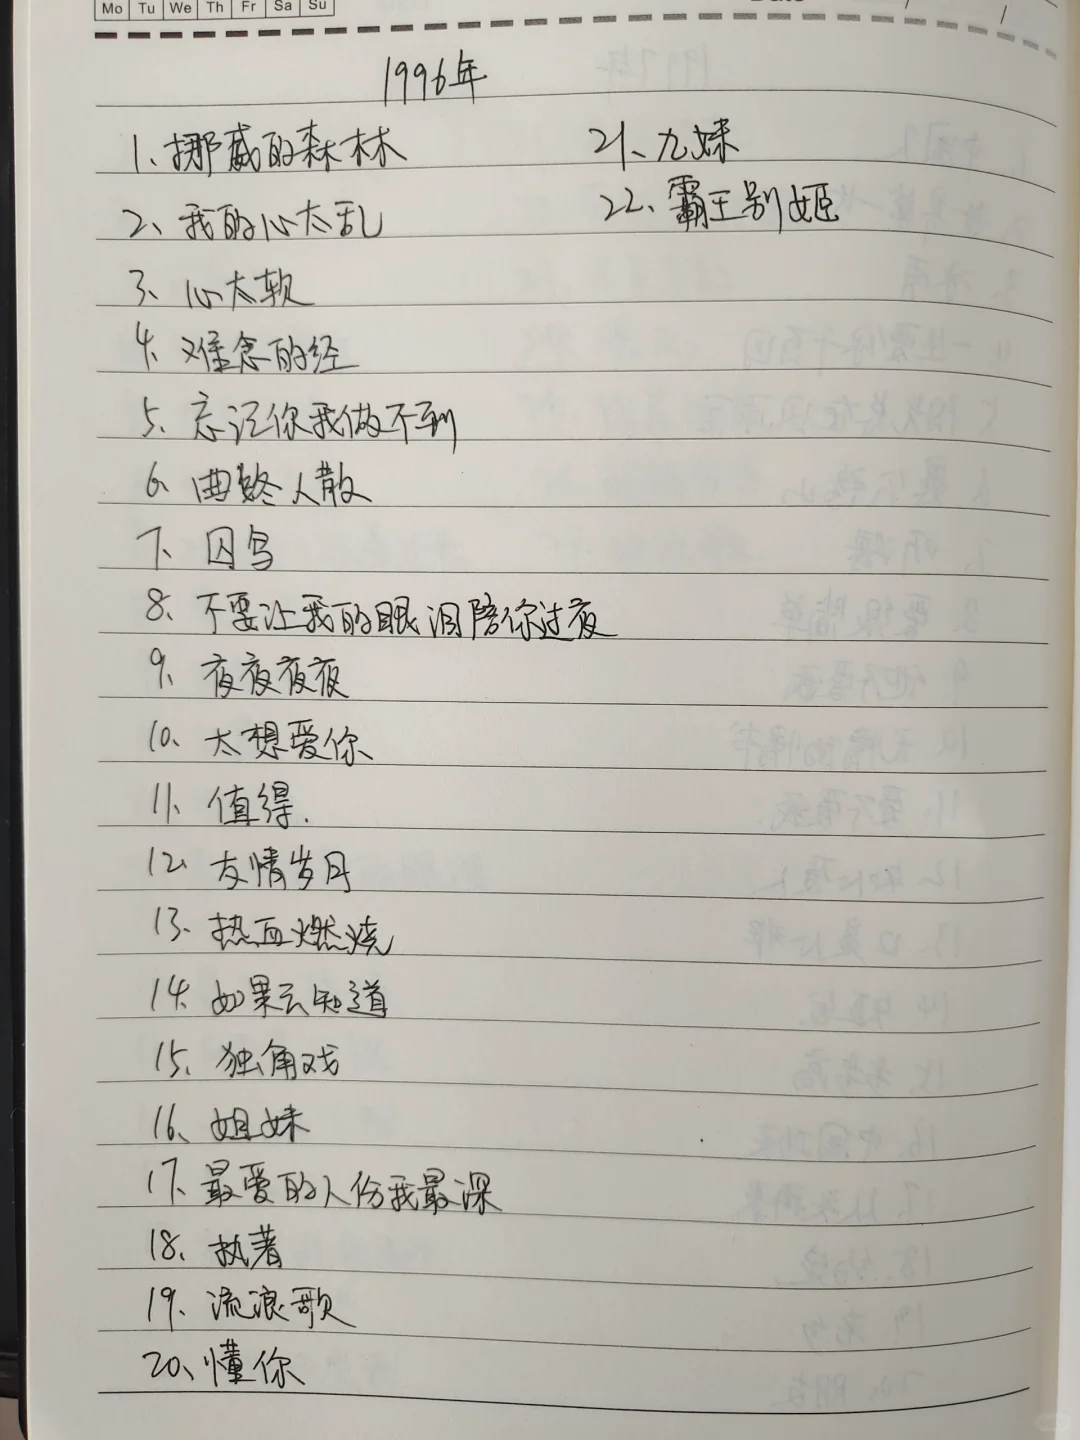 Mo Tu We Th Fr Sa Su
1996年
1、挪威的森林
2、我的心太乱
3、心太软
4、难念的经
5、忘记你我做不到
6、曲终人散
7、囚鸟
8、不要让我的眼泪陪你过夜
9、夜夜夜夜
10、太想爱你
11、值得.
12、友情岁月
13、热血燃烧
14、如果云知道
15、独角戏
16、姐妹
17、最爱的人伤我最深
18、执著
19、流浪歌
20、懂你
21、九妹
22、霸王别姬